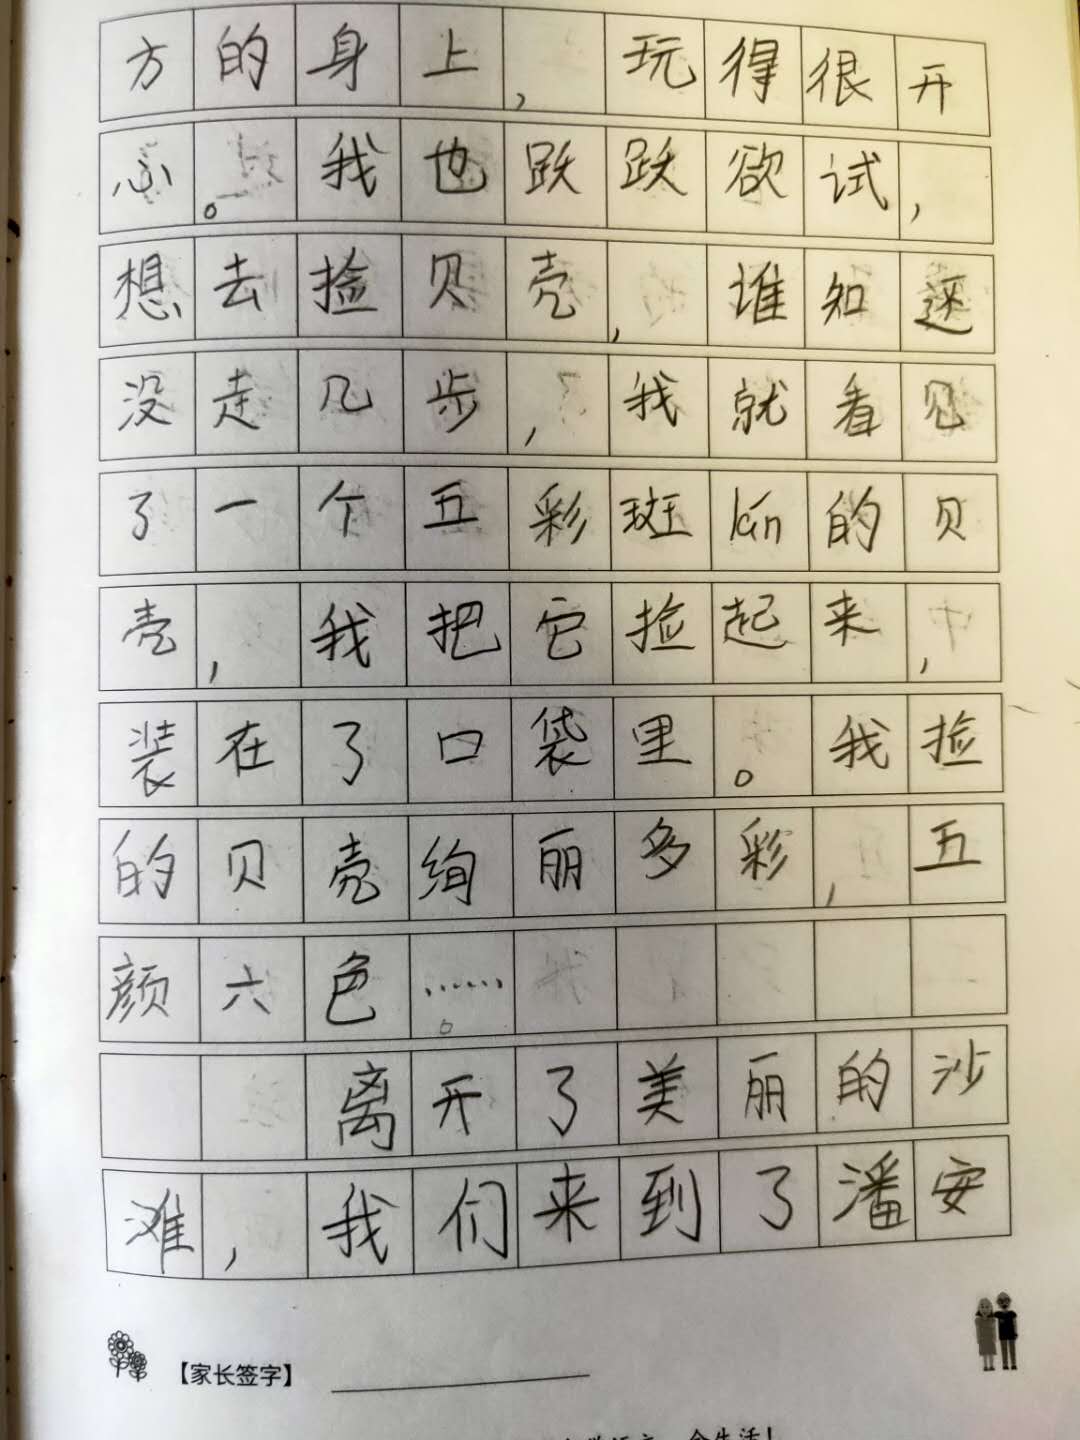 方的身上，玩得很开
心。我也跃跃欲试，
想去捡贝壳，谁知还
没走几步，我就看见
了一个五彩斑lán的贝
壳，我把它捡起来，
装在了口袋里。我捡
的贝壳绚丽多彩，五
颜六色……。
离开了美丽的沙
滩，我们来到了潘安
【家长签字】